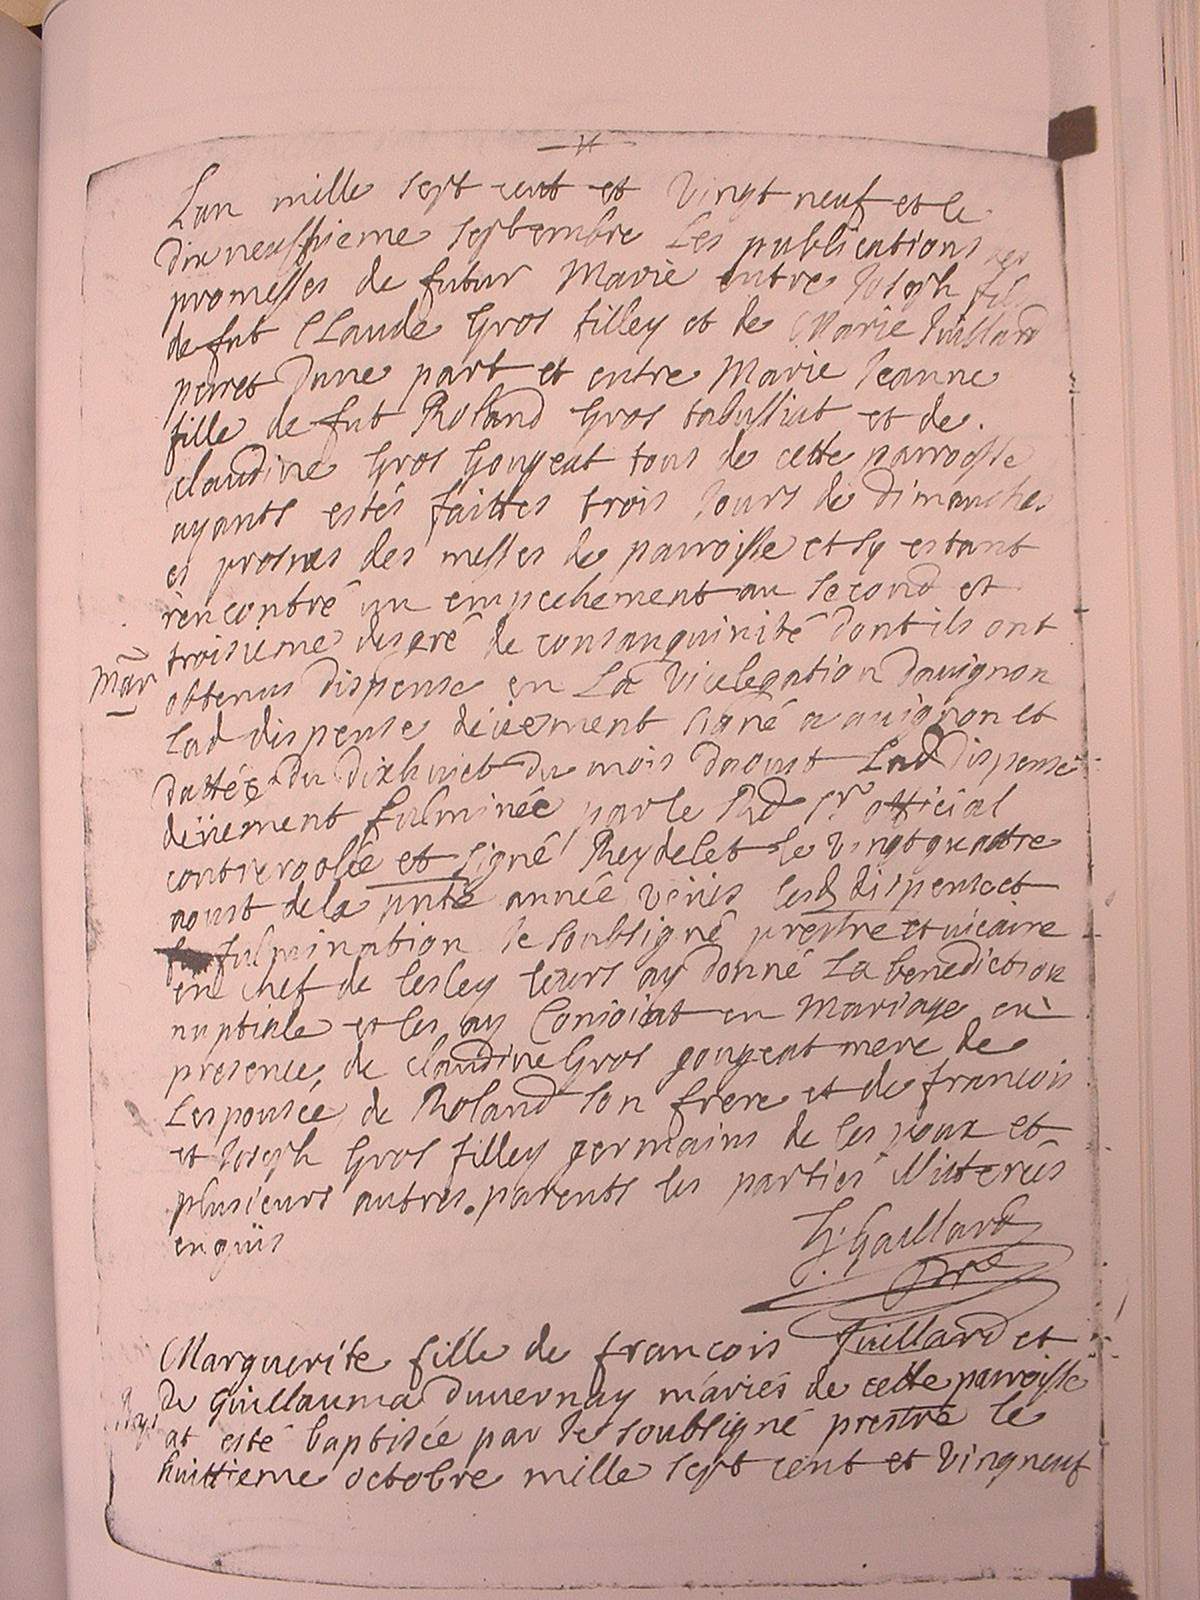 Lan mille sept cent et vingt neuf et le
dixneufvieme septembre Les publications des
promesses de futur Marie entres Joseph fils
de fut Claude Gros filley et de Marie Juillard
perret dune part et entre Marie Jeanne
fille de fut Roland Gros tabussiat et de.
claudine Gros Gougeat tous de cette parroisse
ayants estés faittes trois Jours de dimanches
es prosnes des messes de parroisse et sy estant
rencontré un empechement au second et
troisieme degré de consanguinité dont ils ont
Mar
obtenus dispense en La Vicelegation davignon
Lad dispense düement signé a avignon et
dattée du dixhuict du mois daoust Lad dispense
düement fulminée par le Rd Sr official
controolée et signé Reydelet le vingtquattre
aoust de la pnte année veüis lesd dispense et
fulmination Je soubsigné prestre et vicaire
en chef de lesley leurs ay donné La benediction
nuptiale et les ay Conioint en Mariage en
presence, de claudine Gros gougeat mere de
Lespousée, de Roland son frere et de francois
et Joseph Gros filley germains de lespoux et
plusieurs autres parents les parties Illitterés
enquis
G. Gaillard
pre
Marguerite fille de francois Juillard et
Bap
De Guillauma Duvernay mariés de cette parroisse
at esté baptisée par Je soubsigné prestre le
huittieme octobre mille sept cent et vingneuf